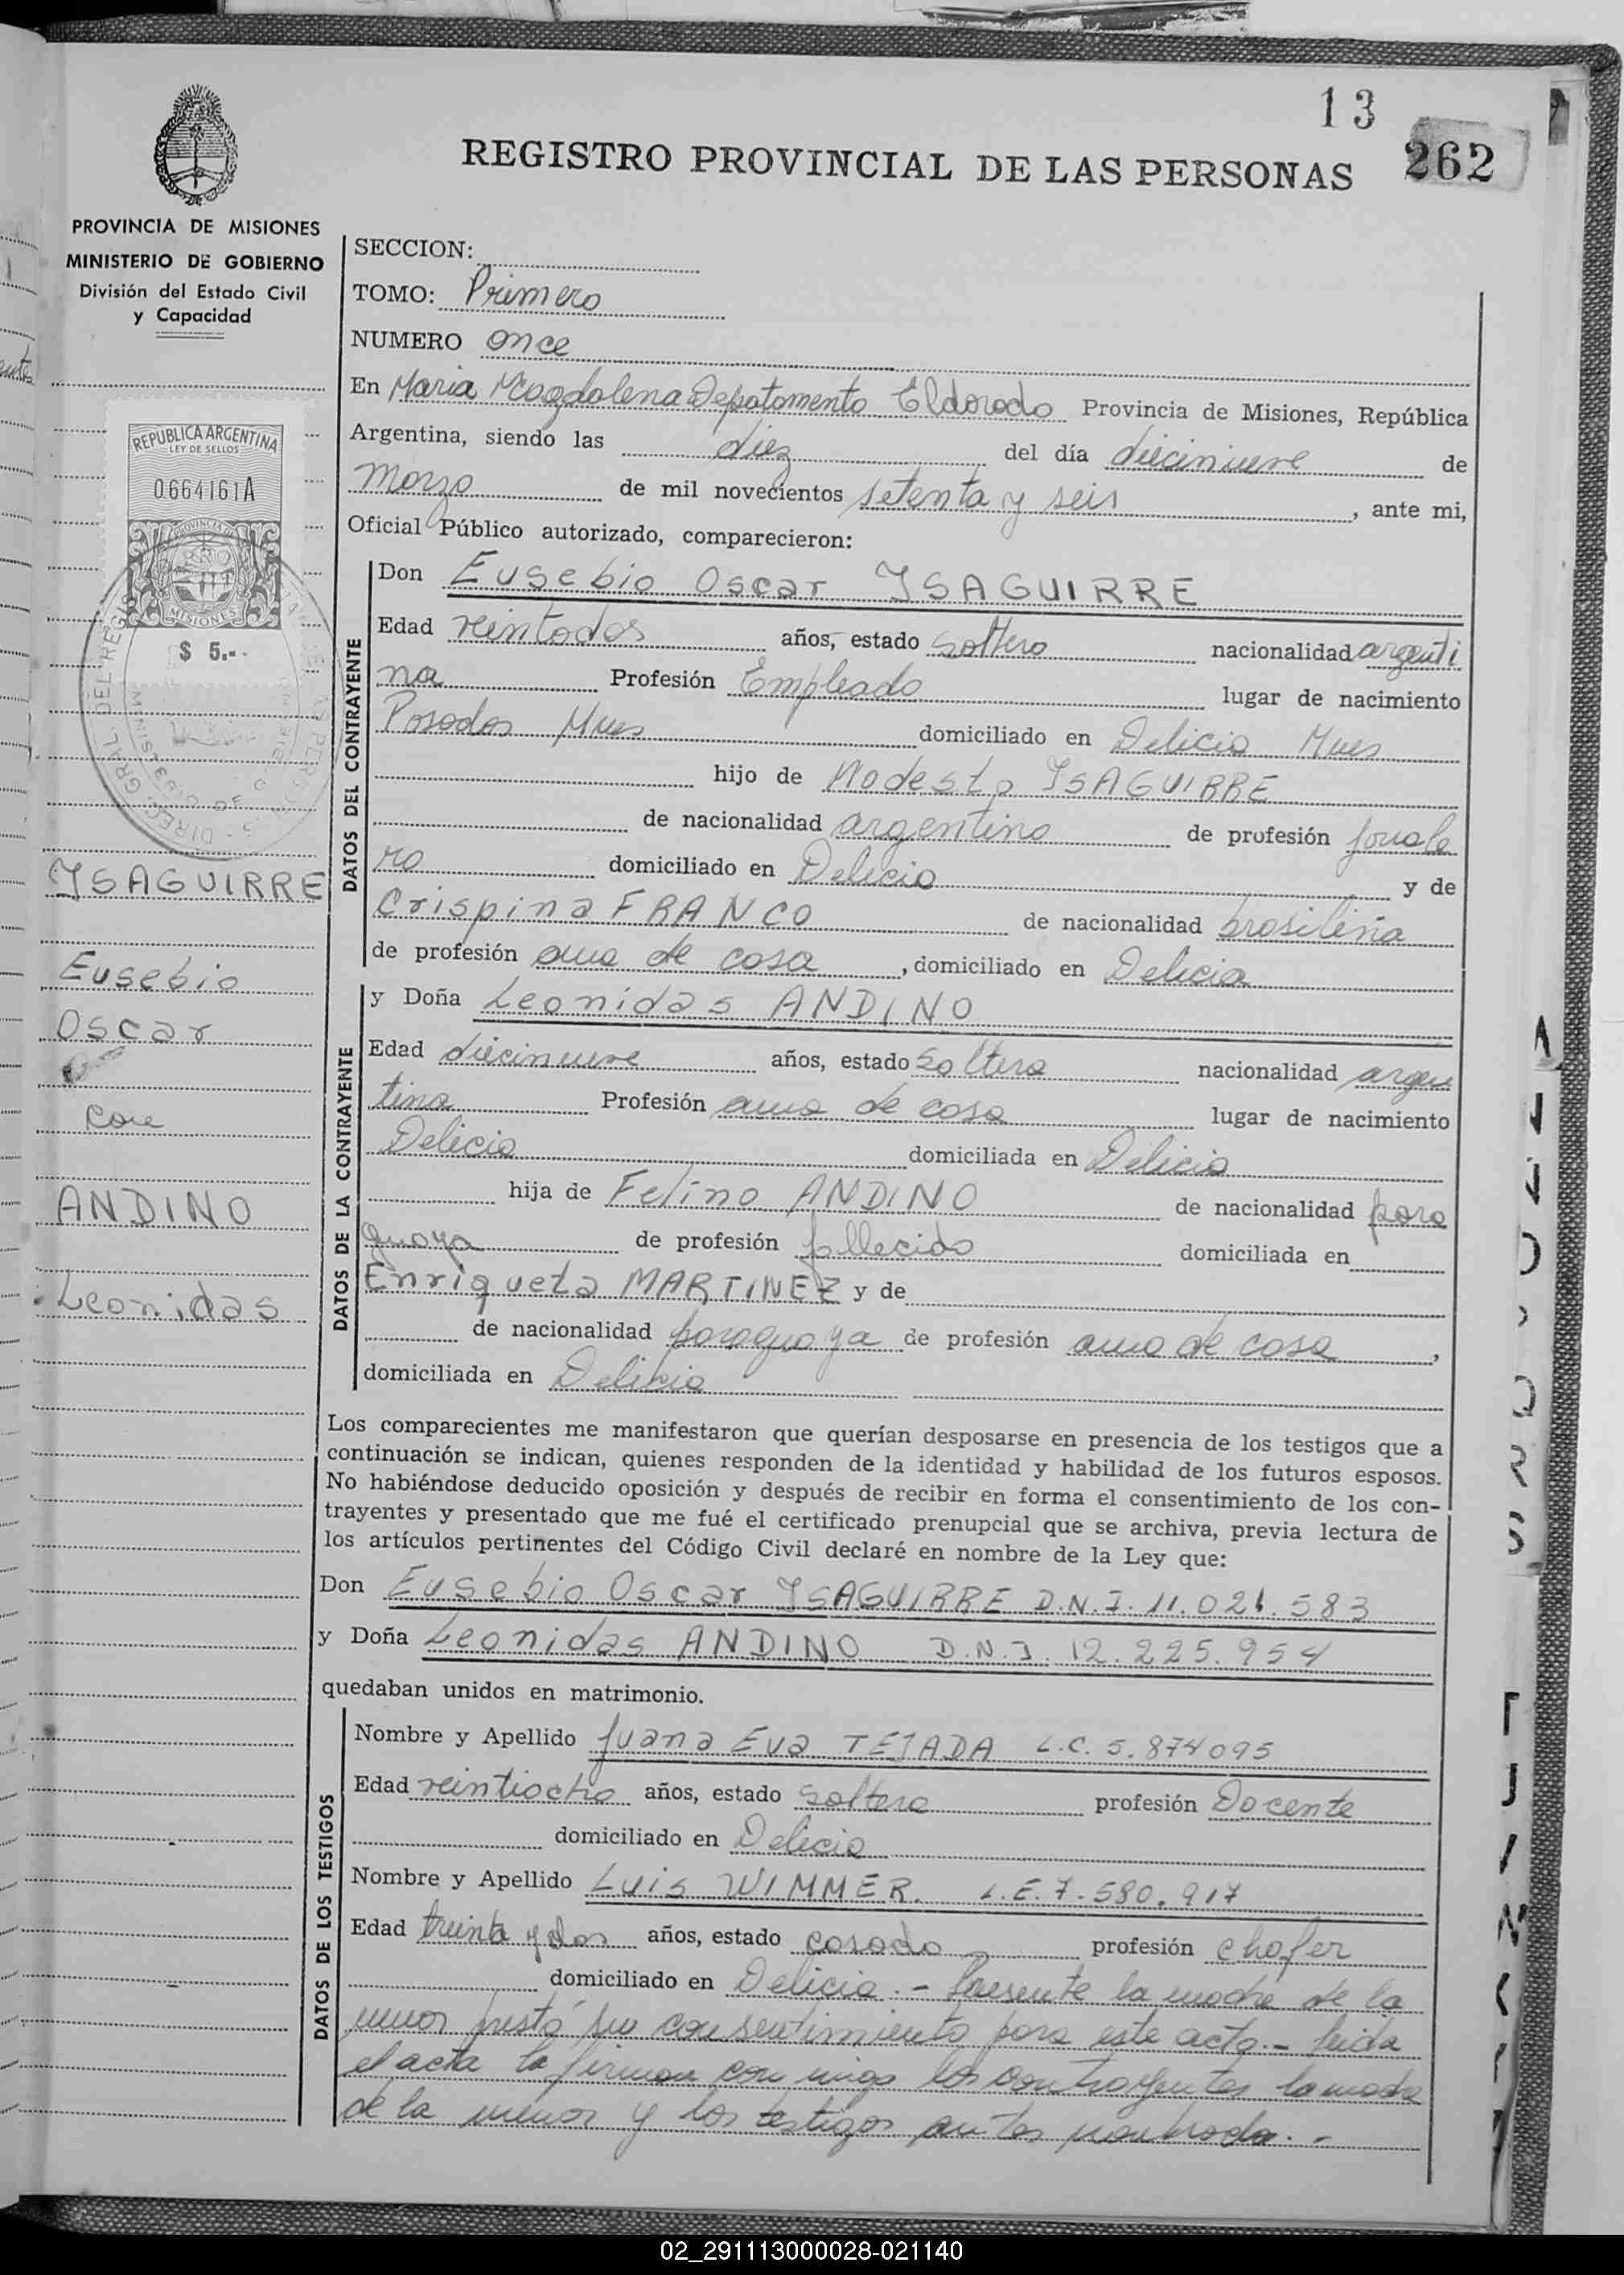 13
262
REGISTRO PROVINCIAL DE LAS PERSONAS
PROVINCIA DE MISIONES
MINISTERIO DE GOBIERNO
División del Estado Civil
y Capacidad
REPUBLICA ARGENTINA
LEY DE SELLOS
0664161A
PROVINCIA
MISIONES
$ 5.-
ISAGUIRRE
Eusebio
Oscar
con
ANDINO
Leonidas
SECCION:
TOMO: Primero
NUMERO once
En Maria Magdalena Depatamento Eldorado Provincia de Misiones, República
Argentina, siendo las diez del día diecinueve de
marzo de mil novecientos setenta y seis, ante mi,
Oficial Público autorizado, comparecieron:
DATOS DEL CONTRAYENTE
Don Eusebio Oscar ISAGUIRRE
Edad veintidos años, estado soltero nacionalidad argenti
na Profesión Empleado lugar de nacimiento
Posadas Mnes domiciliado en Delicia Mnes
hijo de Modesto ISAGUIRRE
de nacionalidad argentina de profesión jornale
ro domiciliado en Delicia y de
Crispina FRANCO de nacionalidad brasileña
de profesión ama de casa, domiciliado en Delicia
DATOS DE LA CONTRAYENTE
y Doña Leonidas ANDINO
Edad diecinueve años, estado soltera nacionalidad argen
tina Profesión ama de casa lugar de nacimiento
Delicia domiciliada en Delicia
hija de Felino ANDINO de nacionalidad para
guaya de profesión fallecido domiciliada en
Enriqueta MARTINEZ y de
de nacionalidad paraguaya de profesión ama de casa,
domiciliada en Delicia
Los comparecientes me manifestaron que querían desposarse en presencia de los testigos que a
continuación se indican, quienes responden de la identidad y habilidad de los futuros esposos.
No habiéndose deducido oposición y después de recibir en forma el consentimiento de los con-
trayentes y presentado que me fué el certificado prenupcial que se archiva, previa lectura de
los artículos pertinentes del Código Civil declaré en nombre de la Ley que:
Don Eusebio Oscar ISAGUIRRE D.N.I. 11.021.583
y Doña Leonidas ANDINO D.N.I. 12.225.954
quedaban unidos en matrimonio.
DATOS DE LOS TESTIGOS
Nombre y Apellido Juana Eva TEJADA L.C. 5.874095
Edad veintiocho años, estado soltera profesión Docente
domiciliado en Delicia
Nombre y Apellido Luis WIMMER. L.E. 7.580.917
Edad treinta y dos años, estado casado profesión chofer
domiciliado en Delicia.- Presente la madre de la
menor prestó su consentimiento para este acto.- Leida
el acta la firman con migo los contrayentes la madre
de la menor y los testigos antes nombrado.-
02_291113000028-021140